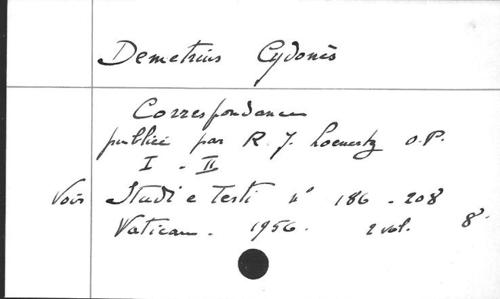 Demetrius Cydonès
Correspondance
publiée par R. J. Loenertz O.P.
I - II
Voir Studi e Testi n° 186 - 208
Vatican. 1956. 2 vol. 8°